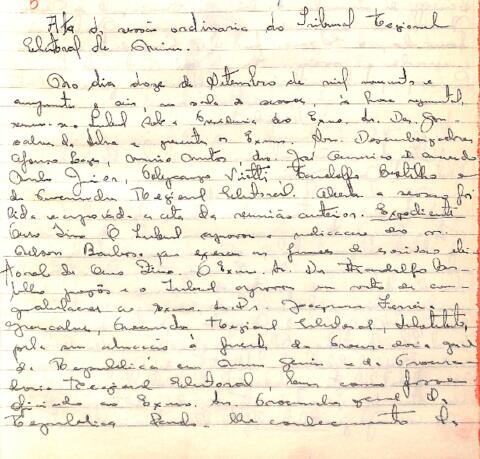 Ata da sessão ordinaria do Tribunal Regional
Eleitoral de Minas.
Aos dia doze de Setembro de mil novecentos e
cinquenta e seis, na sala de sessões, à hora regimental,
reuniu-se o Tribunal sob a Presidencia do Exmo. Sr. Des.
da Silva e presentes os Exmos. Srs. Desembargadores
Afonso, Dr. José Americo de Macedo
e
do Procurador Regional Eleitoral. Aberta a sessão foi
lida e aprovada a ata da reunião anterior. Expediente
Ouro Fino. O Tribunal aprovou a indicação do sr.
Nelson Barbosa para exercer as funções de escrivão elei-
toral de Ouro Fino. O Exmo. Sr. Dr.
propôs e o Tribunal aprovou um voto de con-
gratulações ao Exmo. Sr. Dr. Joaquim Ferreira
Gonçalves, Procurador Regional Eleitoral, Substituto,
pela sua atuação à frente da Procuradoria geral
da Republica em Minas Gerais e da Procura-
doria Regional Eleitoral, bem como fosse
oficiado ao Exmo. Sr. Procurador geral da
Republica dando-lhe conhecimento da